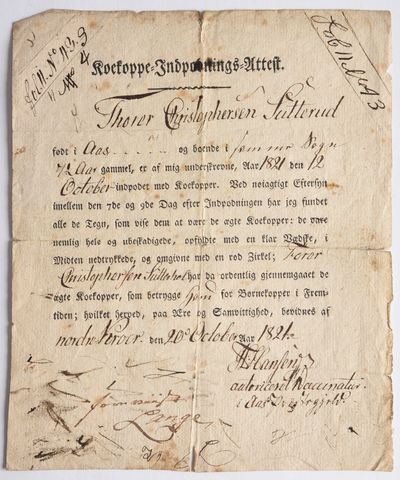 Fol 11. No 43.
Fol 11. No 43
Kokoppe-Indpodnings-Attest.
Thorer Christophersen Sutterud
født i Aas - - - - og boende i samme Sogn
7½ Aar gammel, er af mig underskrevne, Aar 1821 den 12
October indpodet med Kokopper. Ved nøiagtigt Eftersyn
imellem den 7de og 9de Dag efter Indpodningen har jeg fundet
alle de Tegn, som vise dem at være de ægte Kokopper: de vare
nemlig hele og ubeskadigede, opfyldte med en klar Vædske, i
Midten nedtrykkede, og omgivne med en rød Zirkel;
Christophersen har da ordentlig gjennemgaaet de
ægte Kokopper, som betrygge ham for Børnekopper i Frem-
tiden; hvilket herved, paa Ære og Samvittighed, bevidnes af
nordre den 20 October Aar 1821.
Hansen
autoriceret Vaccinatør
i Aas Præstegjeld.
Lange